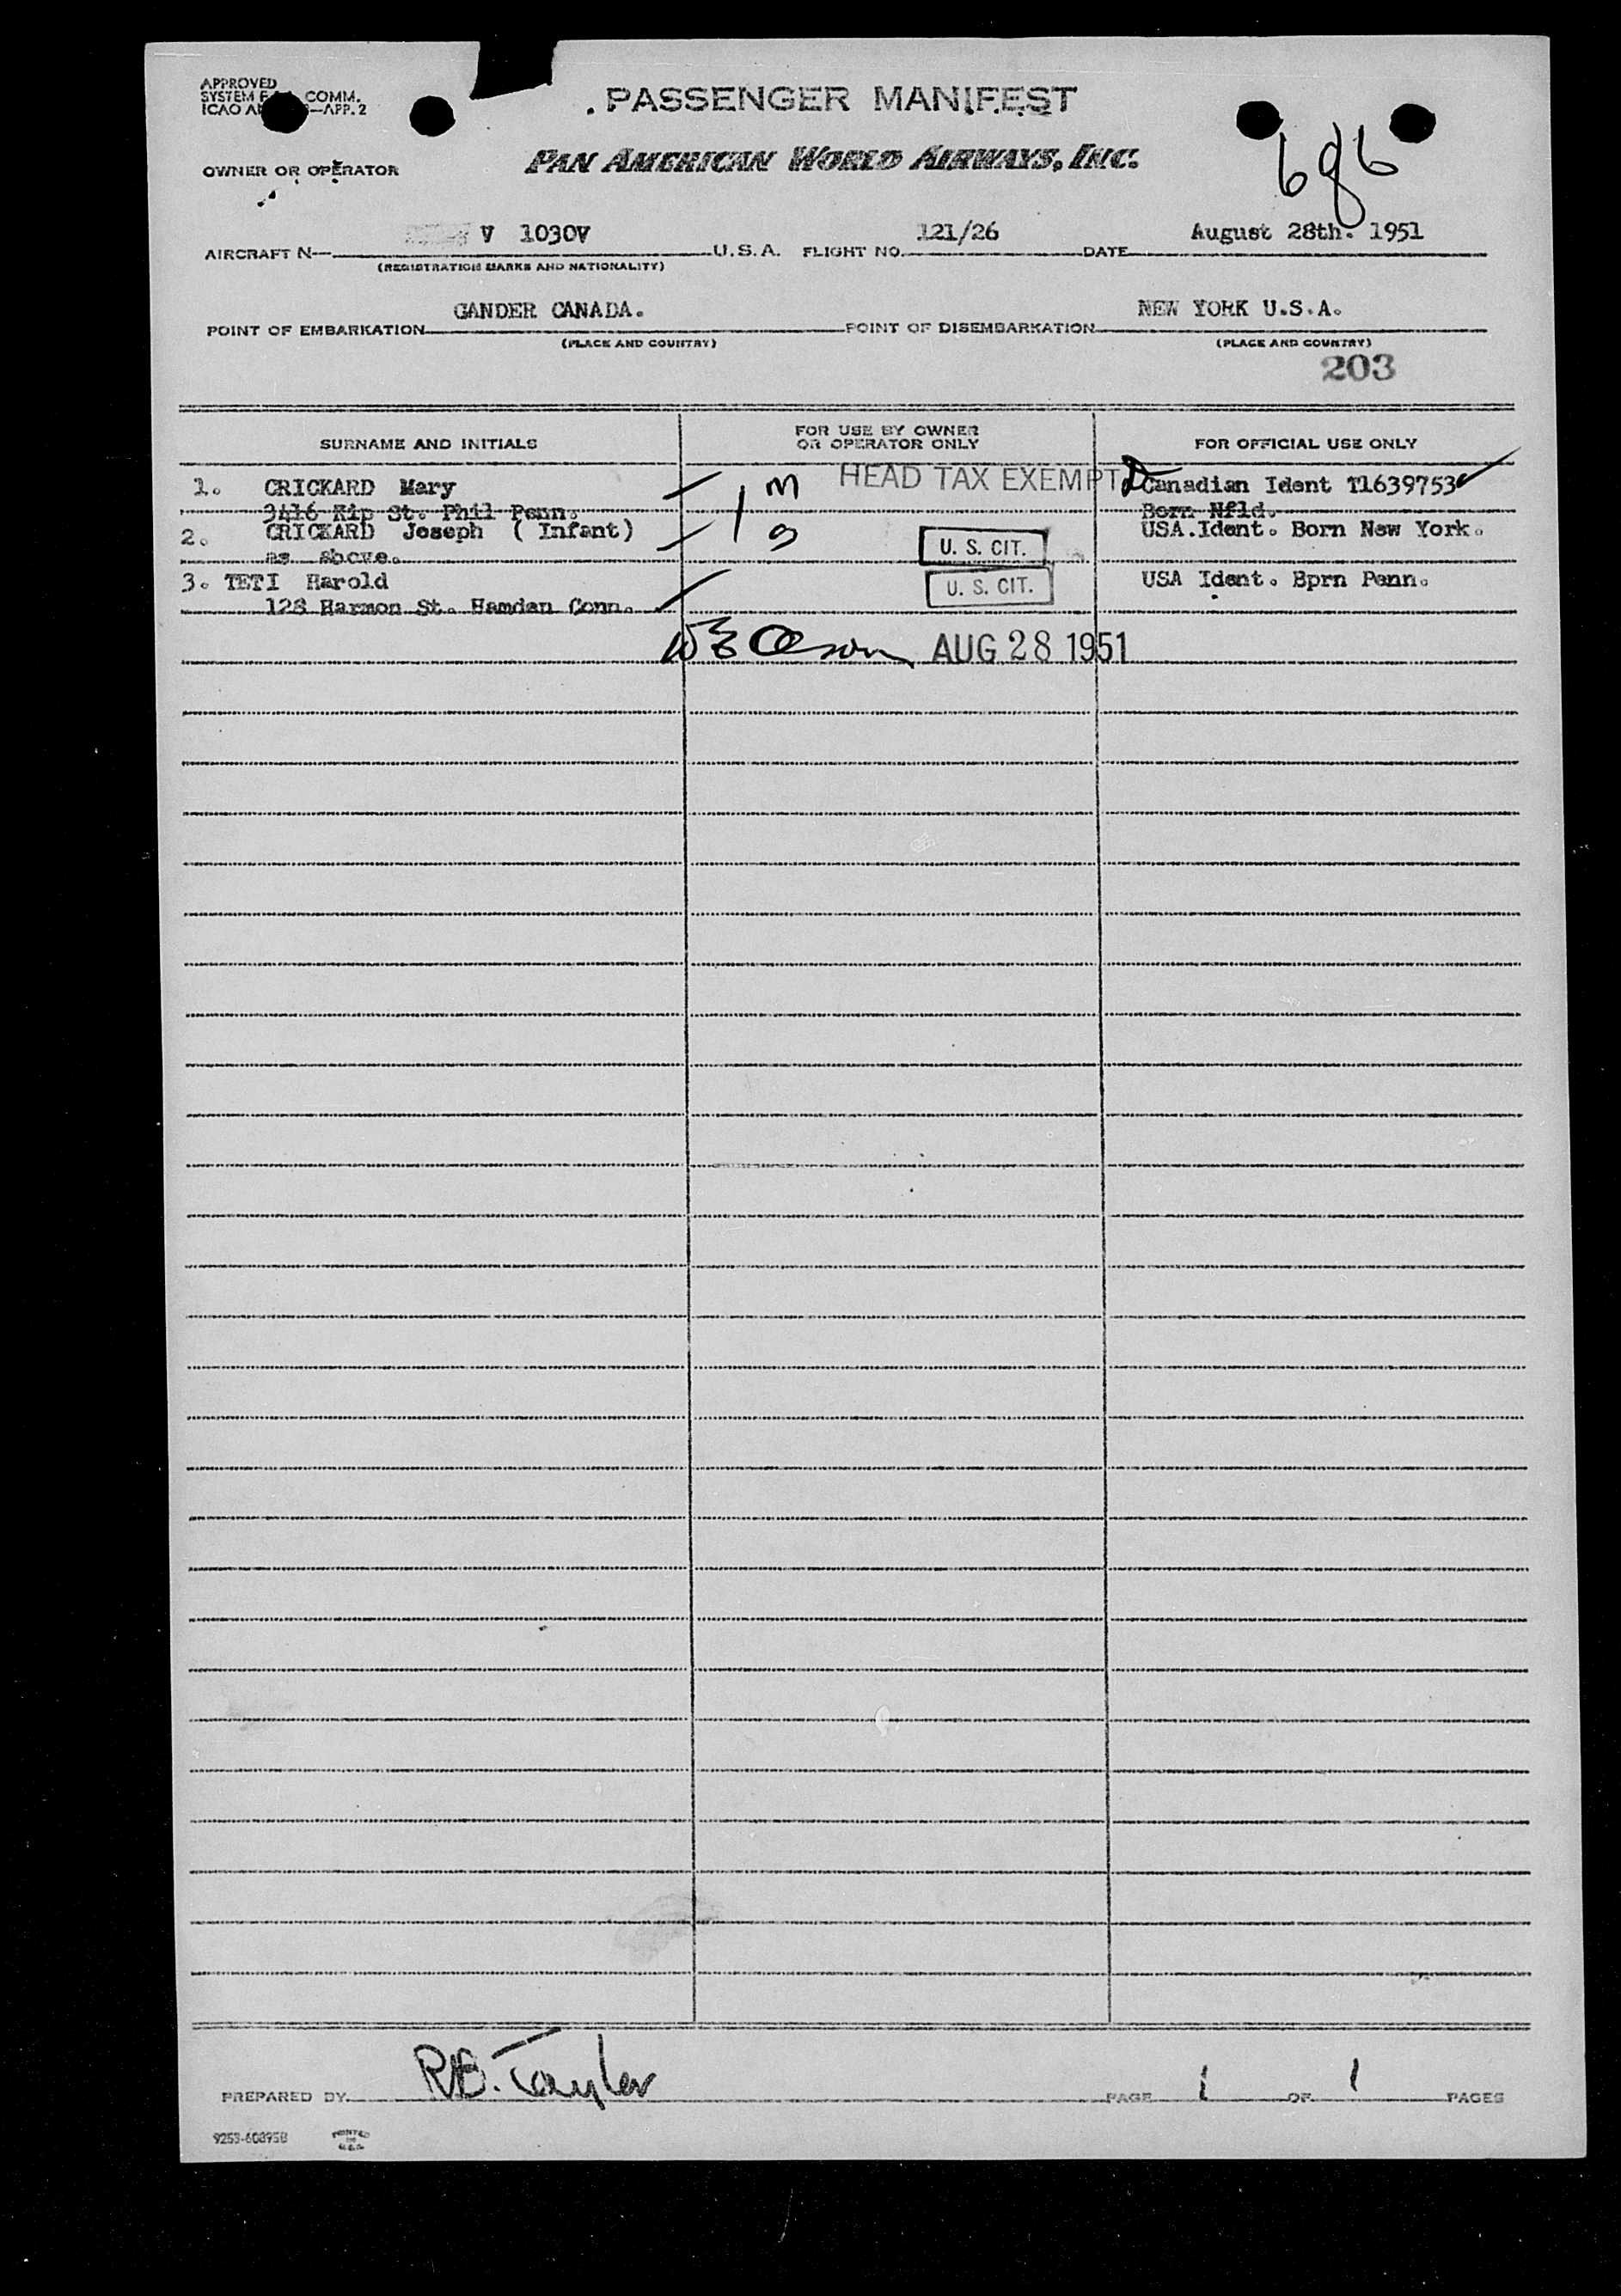 APPROVED
SYSTEM COMM.
ICAO —APP. 2
PASSENGER MANIFEST
686
OWNER OR OPERATOR
PAN AMERICAN WORLD AIRWAYS, INC.
AIRCRAFT N— V 1030V U.S.A. FLIGHT NO. 121/26 DATE August 28th. 1951
(REGISTRATION MARKS AND NATIONALITY)
POINT OF EMBARKATION GANDER CANADA. POINT OF DISEMBARKATION NEW YORK U.S.A.
(PLACE AND COUNTRY) (PLACE AND COUNTRY)
203
SURNAME AND INITIALS FOR USE BY OWNER OR OPERATOR ONLY FOR OFFICIAL USE ONLY
1. CRICKARD Mary M HEAD TAX EXEMPT Canadian Ident T1639753
3416 Rip St. Phil Penn. Born Nfld.
2. CRICKARD Joseph ( Infant) S U. S. CIT. USA.Ident. Born New York.
as above.
3. TETI Harold U. S. CIT. USA Ident. Bprn Penn.
128 Harmon St. Hamden Conn.
W E Olson AUG 28 1951
PREPARED BY R.B. Taylor PAGE 1 OF 1 PAGES
9253-60895B PRINTED IN U.S.A.